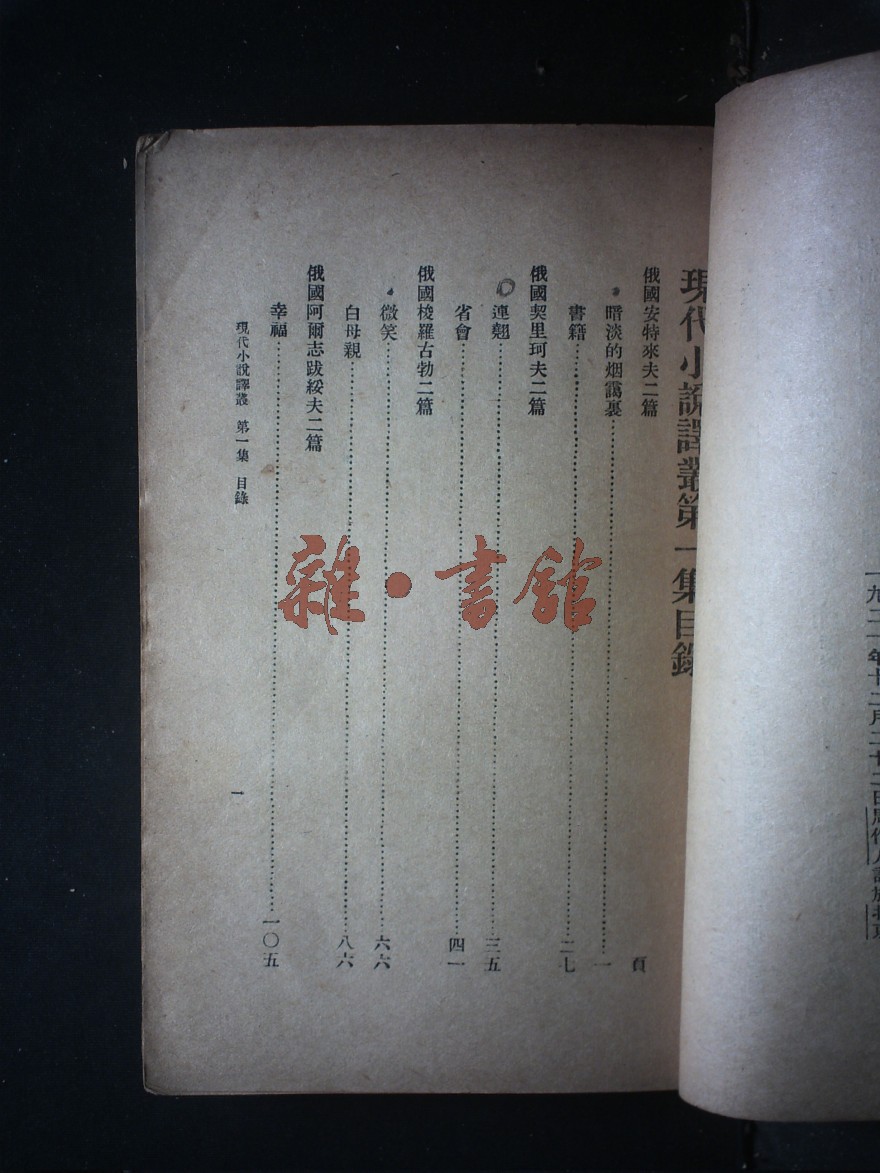 一九二一年十二月二十二日周作人記於北京
現代小說譯叢第一集目錄
俄國安特來夫二篇 頁
暗淡的烟靄裏 一
書籍 二七
俄國契里珂夫二篇
連翹 三五
省會 四一
俄國梭羅古勃二篇
微笑 六六
白母親 八六
俄國阿爾志跋綏夫二篇
幸福 一〇五
現代小說譯叢 第一集 目錄
一
雜·書館